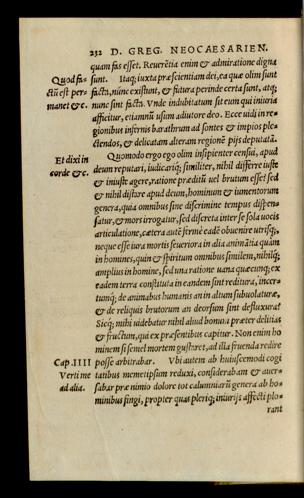 232 D. GREG. NEOCAESARIEN.
quam fas esset. Reuerẽtia enim & admiratione digna
Quod fa- sunt. Itaq; iuxta præscientiam dei, ea quæ olim sunt
ctũ est per- facta, nunc existunt, & futura perinde certa sunt, atq;
manet &c. nunc sint facta. Vnde indubitatum sit eum qui iniuria
afficitur, etiamnũ usum adiutore deo. Ecce uidi in re-
gionibus infernis barathrum ad sontes & impios ple-
ctendos, & delicatam alteram regionẽ pijs deputatã.
Et dixi in Quomodo ergo ego olim insipienter censui, apud
corde &c. deum reputari, iudicariq; similiter, nihil differre iuste
& iniuste agere, ratione præditũ uel brutum esset sed
& nihil distare apud deum, hominum & iumentorum
genera, quia omnibus sine discrimine tempus dispen-
satur, & mors irrogatur, sed discreta inter se sola uocis
articulatione, cætera autẽ firmè eadẽ obuenire utrisq;,
neque esse iura mortis seueriora in alia animãtia quàm
in homines, quin & spiritum omnibus similem, nihilq;
amplius in homine, sed una ratione uana quæcunq; ex
eadem terra constituta in eandem sint reditura, incer-
tumq; de animabus humanis an in altum subuolaturæ,
& de reliquis brutorum an deorsum sint defluxuræ
Sicq; mihi uidebatur nihil aliud bonum præter delitias
& fructum, qui ex præsentibus capitur. Non enim ho
minem si semel mortem gustaret, ad illa fruenda redire
Cap. IIII posse arbitrabar. Vbi autem ab huiuscemodi cogi
Verti me tatibus memetipsum reduxi, considerabam & auer-
ad alia. sabar præ nimio dolore tot calumniarũ genera ab ho-
minibus fingi, propter quas pleriq; iniurijs affecti plo-
rant